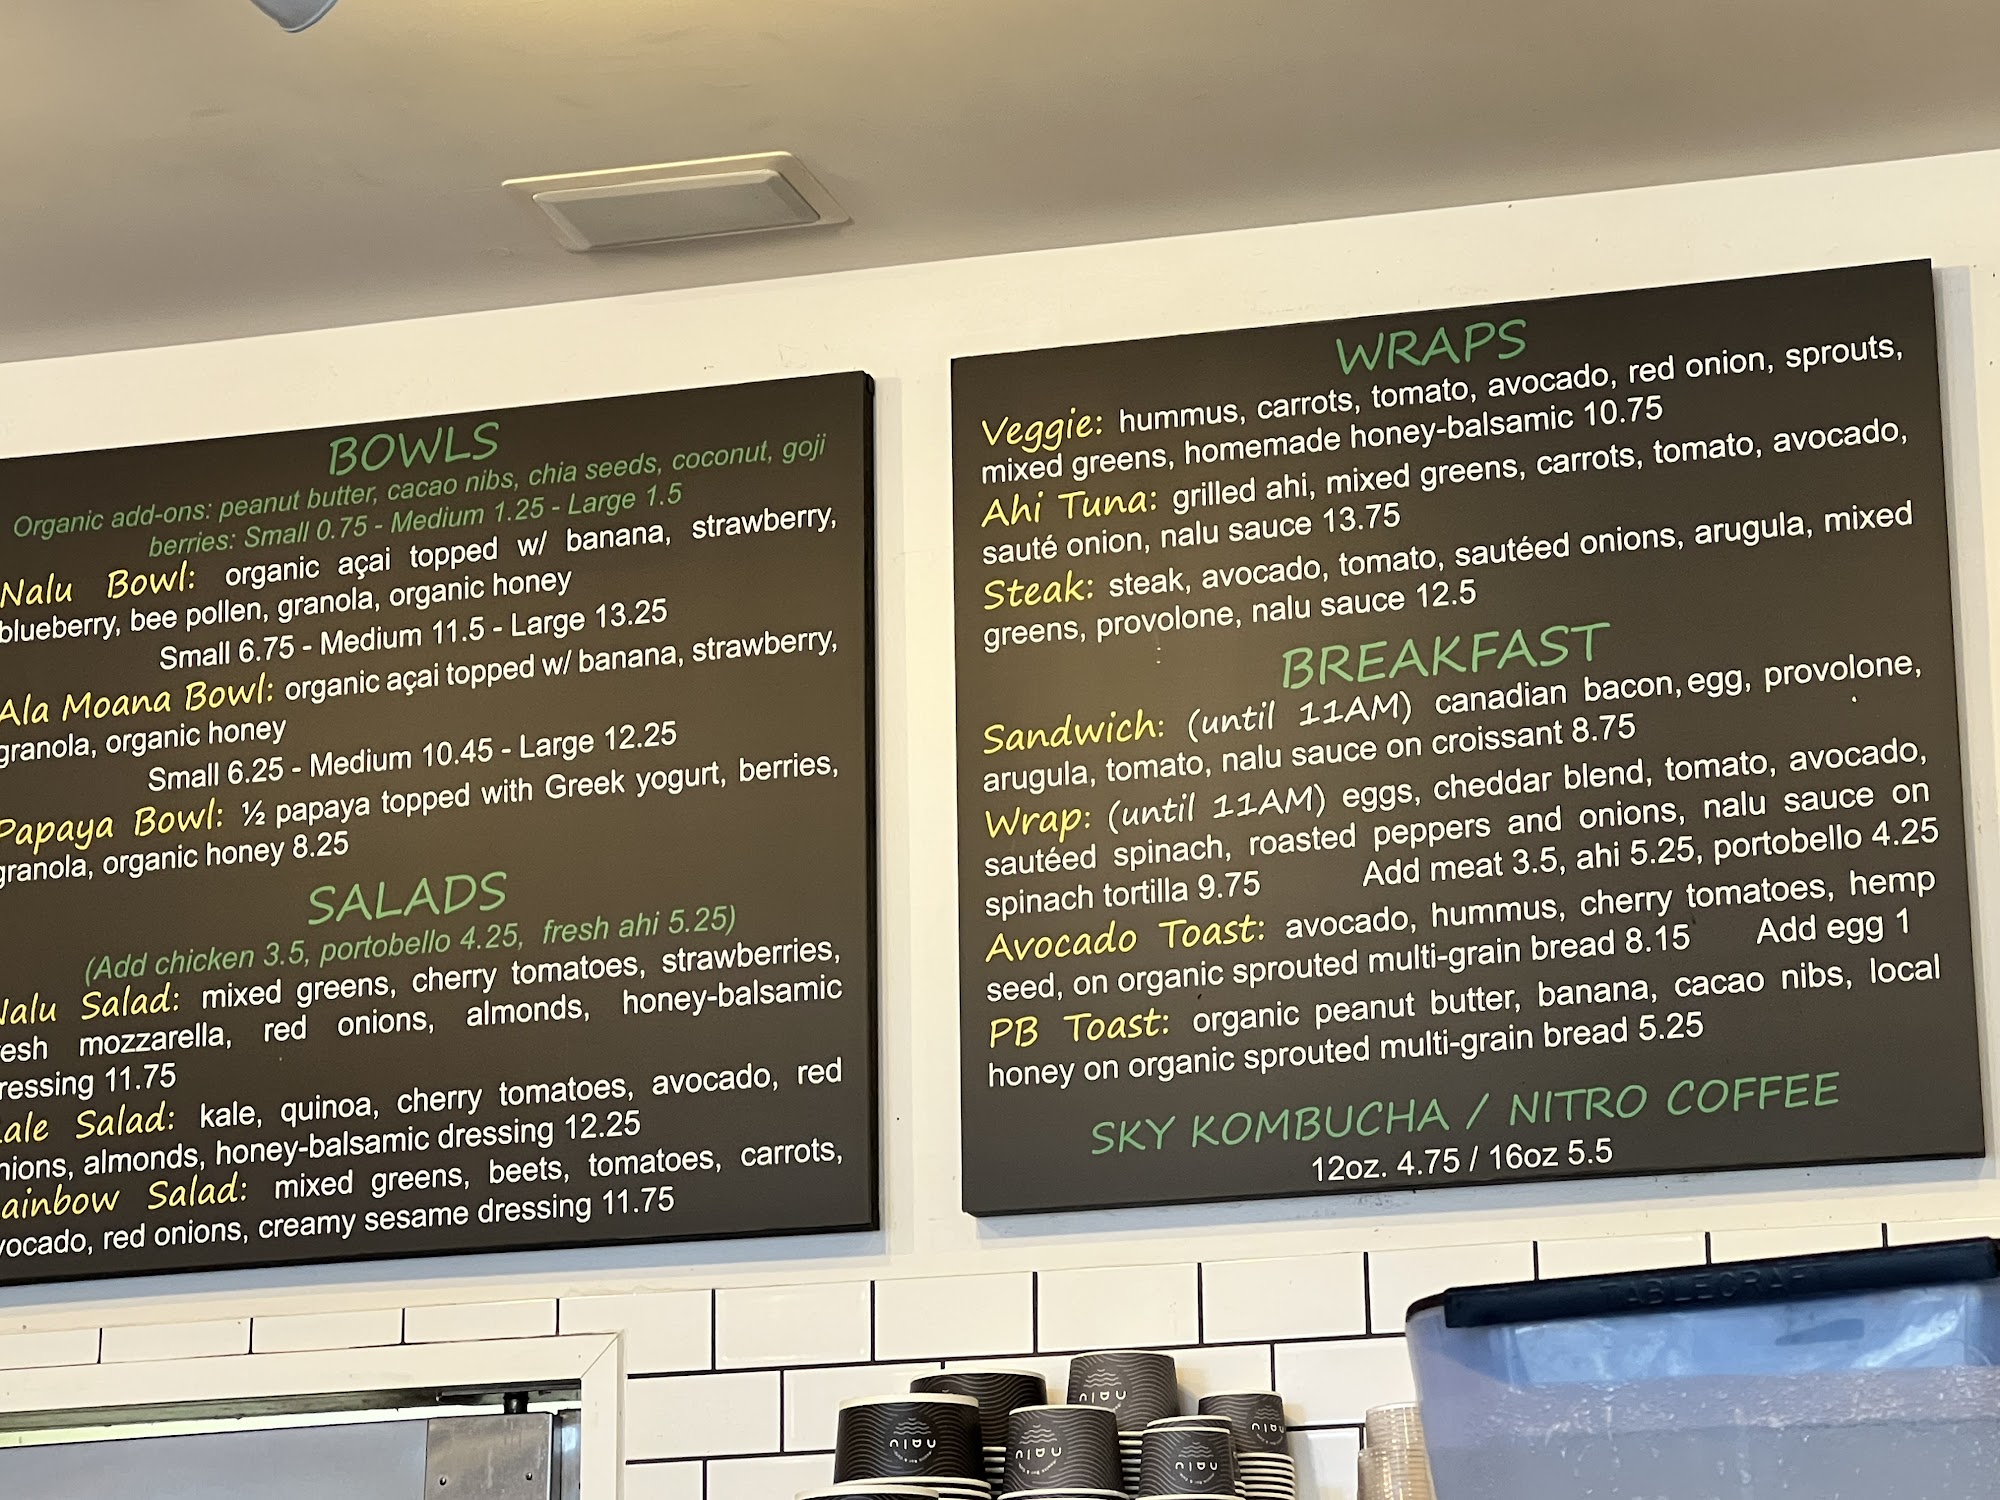 BOWLS
Organic add-ons: peanut butter, cacao nibs, chia seeds, coconut, goji
berries: Small 0.75 - Medium 1.25 - Large 1.5
Nalu Bowl: organic açai topped w/ banana, strawberry,
blueberry, bee pollen, granola, organic honey
Small 6.75 - Medium 11.5 - Large 13.25
Ala Moana Bowl: organic açai topped w/ banana, strawberry,
granola, organic honey
Small 6.25 - Medium 10.45 - Large 12.25
Papaya Bowl: ½ papaya topped with Greek yogurt, berries,
granola, organic honey 8.25
SALADS
(Add chicken 3.5, portobello 4.25, fresh ahi 5.25)
Nalu Salad: mixed greens, cherry tomatoes, strawberries,
resh mozzarella, red onions, almonds, honey-balsamic
ressing 11.75
ale Salad: kale, quinoa, cherry tomatoes, avocado, red
nions, almonds, honey-balsamic dressing 12.25
ainbow Salad: mixed greens, beets, tomatoes, carrots,
vocado, red onions, creamy sesame dressing 11.75
WRAPS
Veggie: hummus, carrots, tomato, avocado, red onion, sprouts,
mixed greens, homemade honey-balsamic 10.75
Ahi Tuna: grilled ahi, mixed greens, carrots, tomato, avocado,
sauté onion, nalu sauce 13.75
Steak: steak, avocado, tomato, sautéed onions, arugula, mixed
greens, provolone, nalu sauce 12.5
BREAKFAST
Sandwich: (until 11AM) canadian bacon, egg, provolone,
arugula, tomato, nalu sauce on croissant 8.75
Wrap: (until 11AM) eggs, cheddar blend, tomato, avocado,
sautéed spinach, roasted peppers and onions, nalu sauce on
spinach tortilla 9.75 Add meat 3.5, ahi 5.25, portobello 4.25
Avocado Toast: avocado, hummus, cherry tomatoes, hemp
seed, on organic sprouted multi-grain bread 8.15 Add egg 1
PB Toast: organic peanut butter, banana, cacao nibs, local
honey on organic sprouted multi-grain bread 5.25
SKY KOMBUCHA / NITRO COFFEE
12oz. 4.75 / 16oz 5.5
TABLECRAFT
nalu
nalu
nalu
nalu
nalu